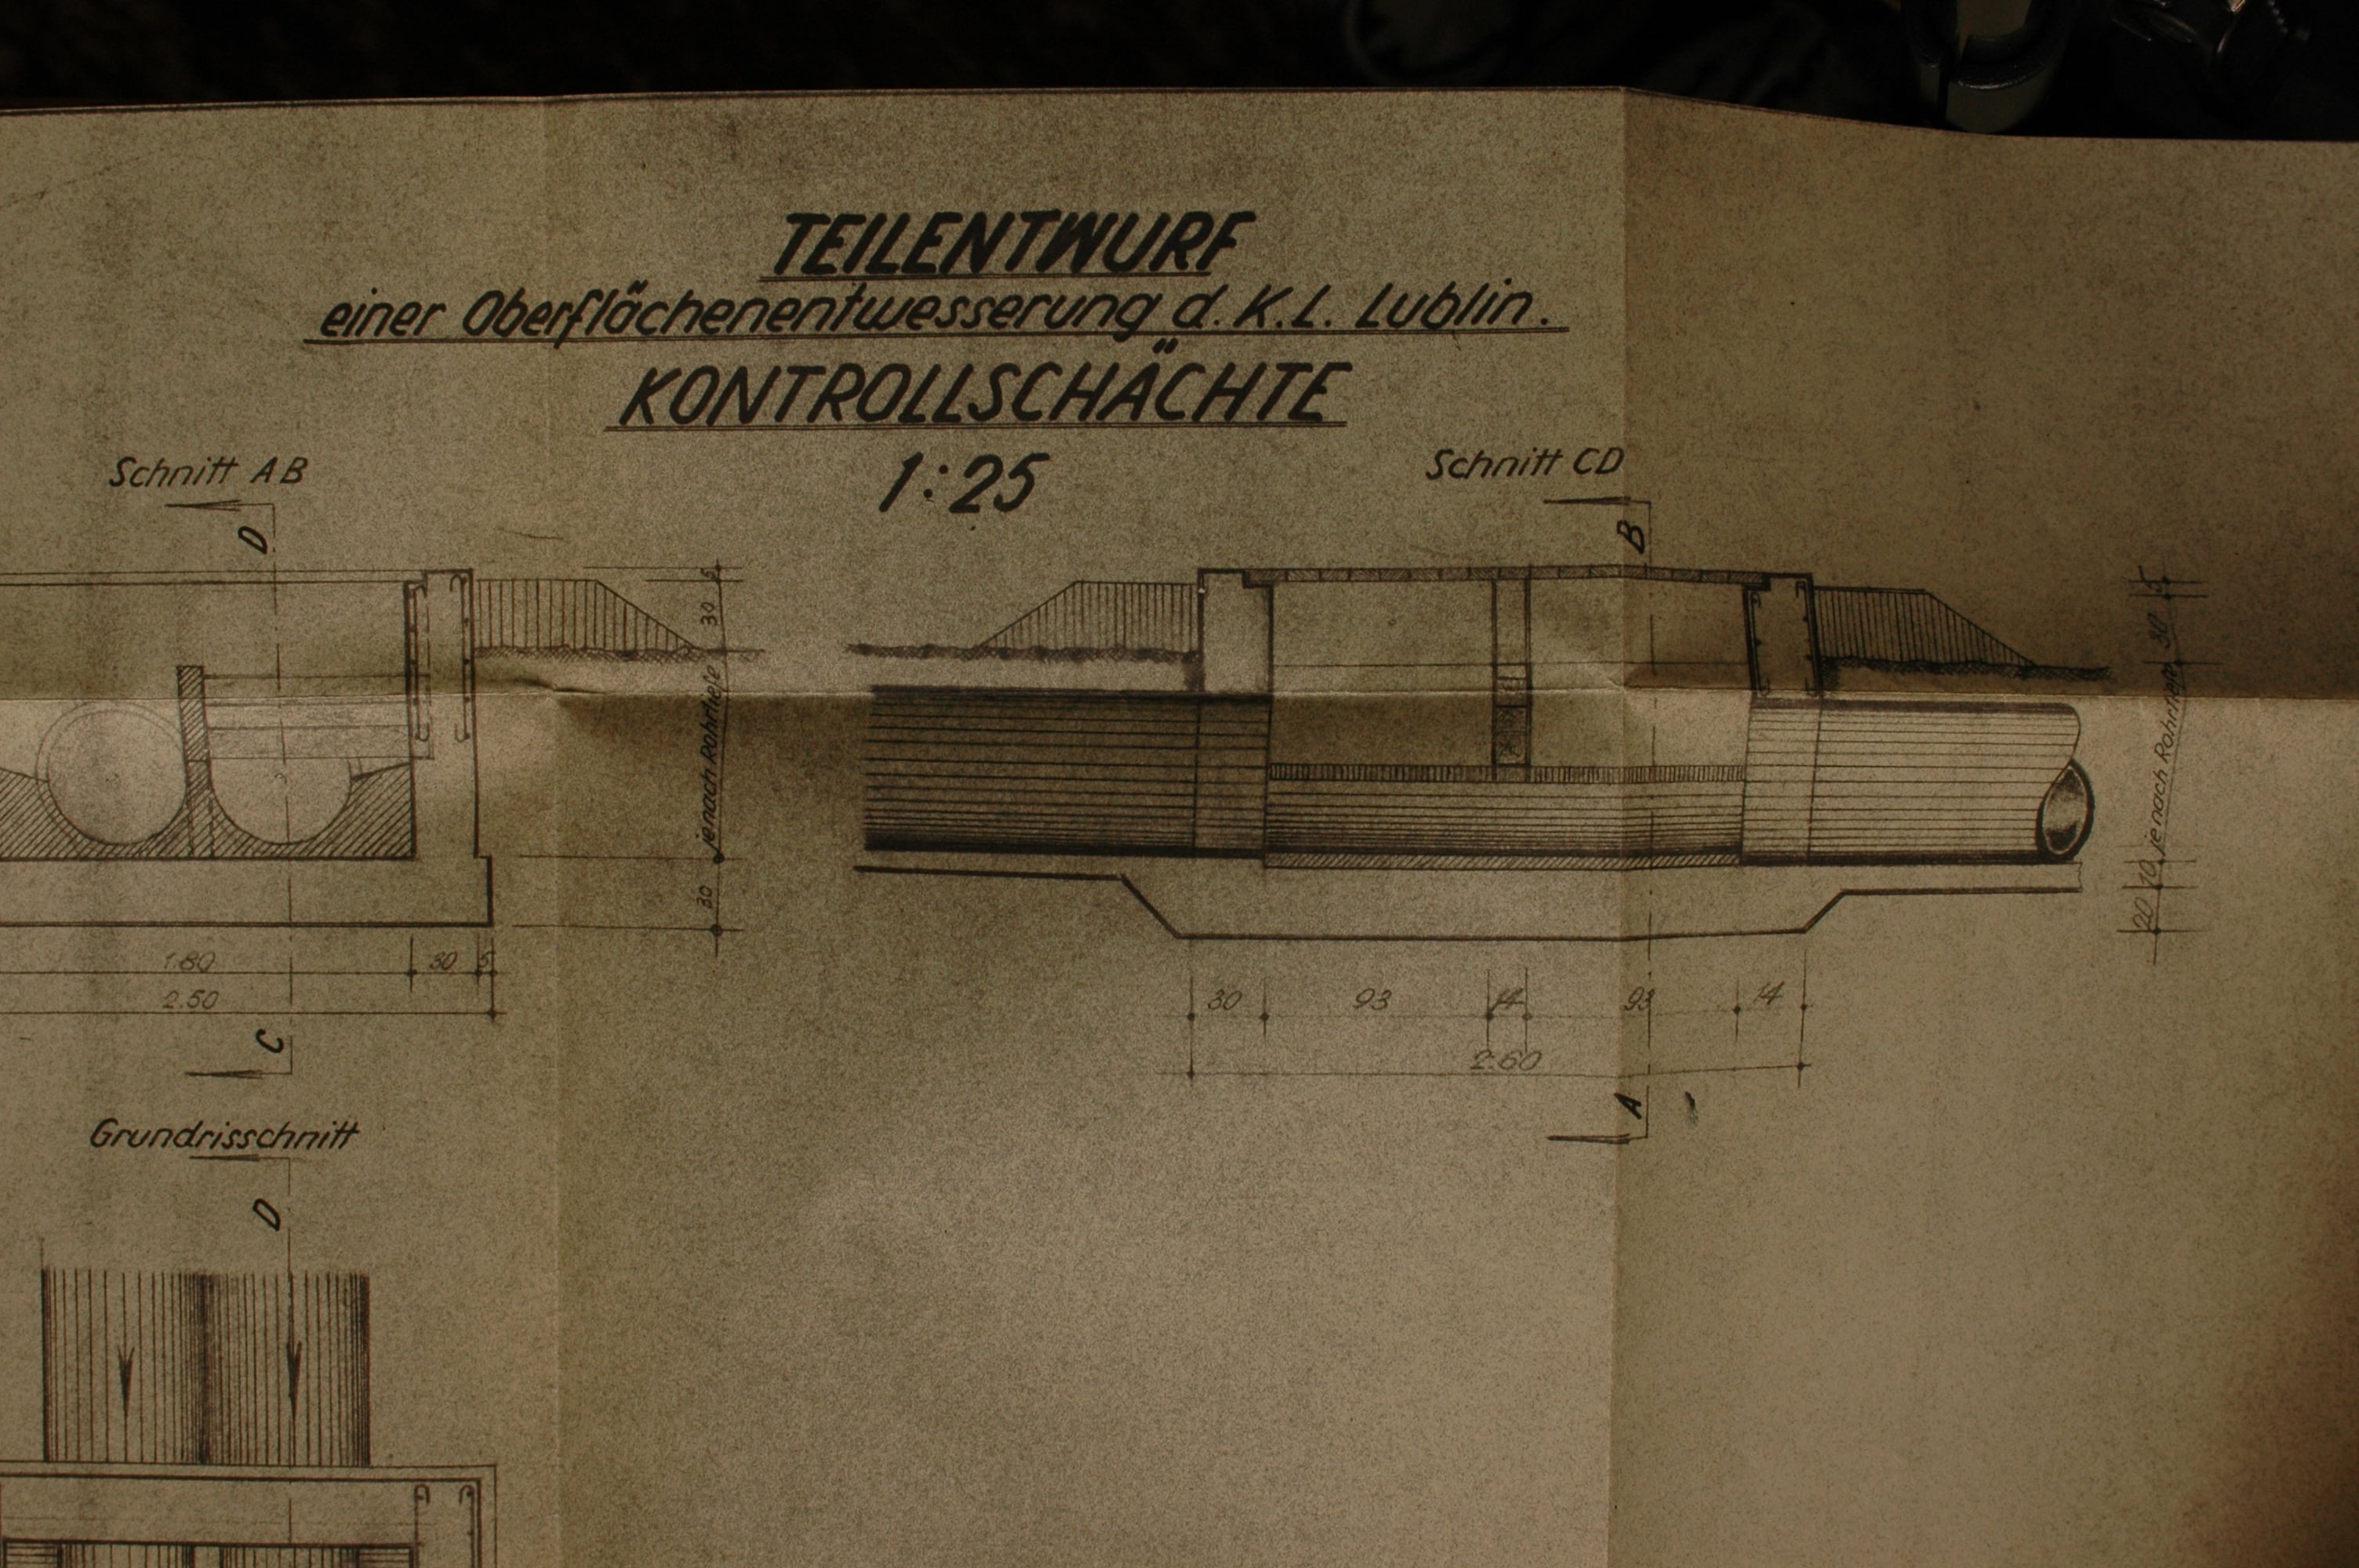 TEILENTWURF
einer Oberflächenentwesserung d. K.L. Lublin.
KONTROLLSCHÄCHTE
1:25
Schnitt AB
D
5
30
je nach Rohrtiefe
30
1.80
30
5
2.50
C
Schnitt CD
B
5
30
je nach Rohrtiefe
10
20
30
93
14
93
14
2.60
A
Grundrisschnitt
D